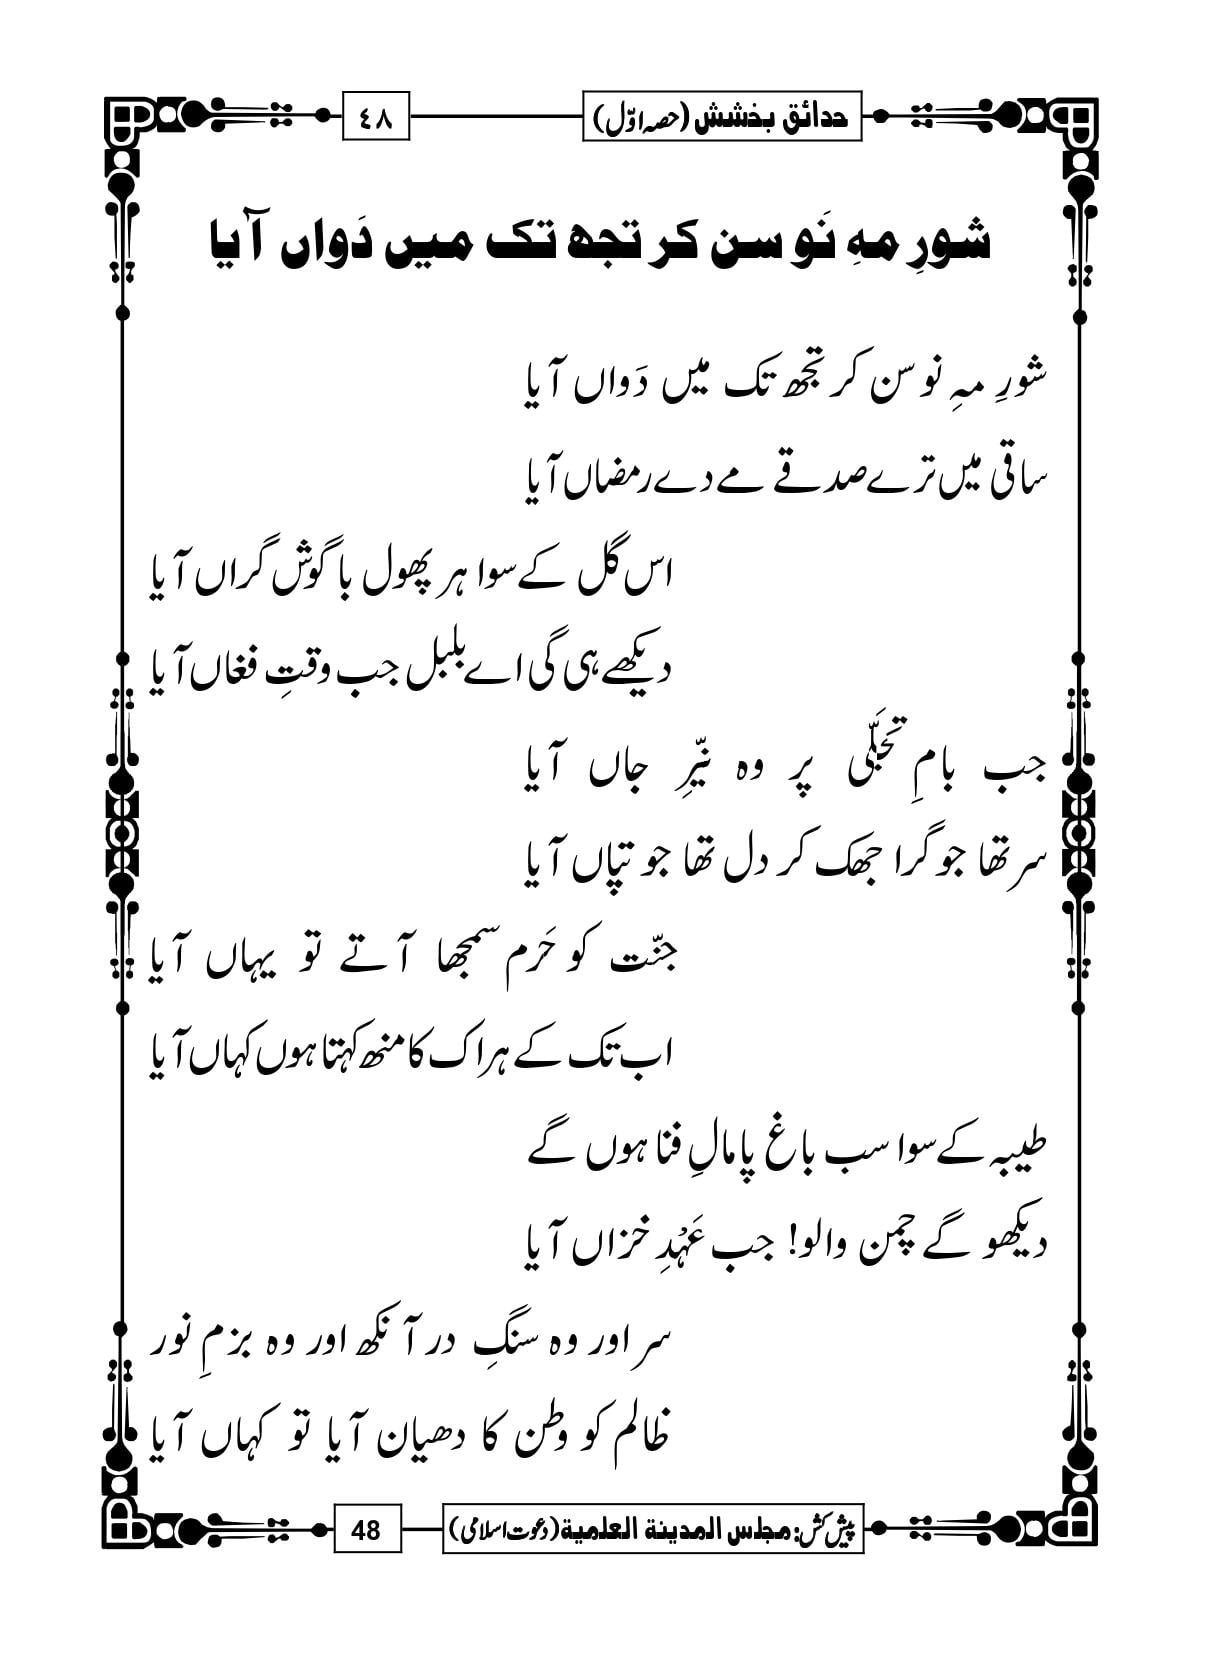 حدائق بخشش (حصہ اوّل)
٤٨
شورِ مہِ نَو سن کر تجھ تک میں دَواں آیا
شورِ مہِ نو سن کر تجھ تک میں دَواں آیا
ساقی میں ترے صدقے مے دے رمضاں آیا
اس گل کے سوا ہر پھول با گوشِ گراں آیا
دیکھے ہی گی اے بلبل جب وقتِ فغاں آیا
جب بامِ تجلّی پر وہ نیّرِ جاں آیا
سر تھا جو گرا جھک کر دل تھا جو تپاں آیا
جنّت کو حَرم سمجھا آتے تو یہاں آیا
اب تک کے ہر اک کا منھ کہتا ہوں کہاں آیا
طیبہ کے سوا سب باغ پامالِ فنا ہوں گے
دیکھو گے چمن والو! جب عَہْدِ خزاں آیا
سر اور وہ سنگِ در آنکھ اور وہ بزمِ نور
ظالم کو وطن کا دھیان آیا تو کہاں آیا
پیش کش: مجلس المدینة العلمیة (دعوت اسلامی)
48